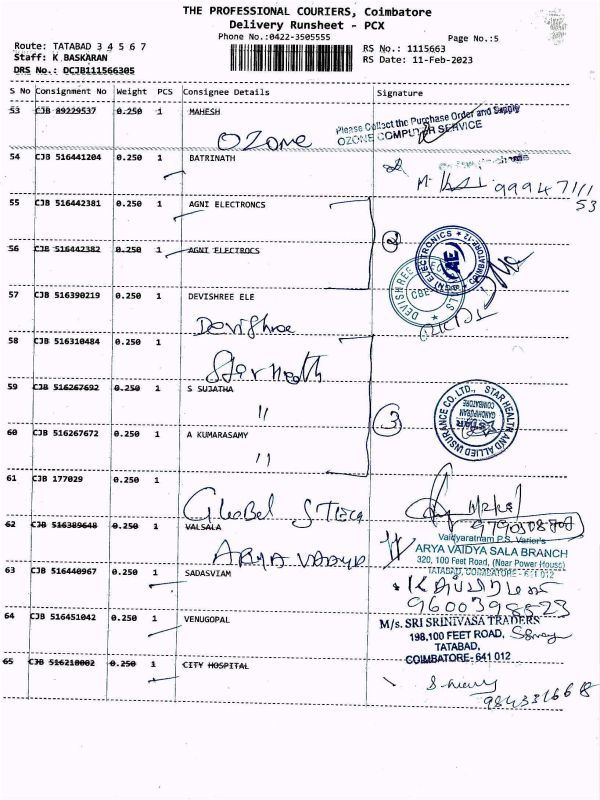 THE PROFESSIONAL COURIERS, Coimbatore
Delivery Runsheet - PCX
Phone No.:0422-3505555
Page No.:5
Route: TATABAD 3 4 5 6 7
RS No.: 1115663
Staff: K BASKARAN
RS Date: 11-Feb-2023
DRS No.: DCJB111566305
S No Consignment No Weight PCS Consignee Details Signature
53 CJB 89229537 0.250 1 MAHESH
Please Collect the Purchase Order and Supply
OZONE COMPUTER SERVICE
Ozone
54 CJB 516441204 0.250 1 BATRINATH
99947111
53
55 CJB 516442381 0.250 1 AGNI ELECTRONCS
2
56 CJB 516442382 0.250 1 AGNI ELECTROCS
ELECTRONICS
AE
DEVISHREE
57 CJB 516390219 0.250 1 DEVISHREE ELE
Devishree
58 CJB 516310484 0.250 1
Star Health
59 CJB 516267692 0.250 1 S SUJATHA
"
3
STAR HEALTH AND ALLIED INSURANCE CO. LTD.,
STAR
GANDHIPURAM
COIMBATORE
60 CJB 516267672 0.250 1 A KUMARASAMY
"
61 CJB 177029 0.250 1
Global Steel
9790508708
62 CJB 516389648 0.250 1 VALSALA
Arya Vaidya
Vaidyaratnam P.S. Varier's
ARYA VAIDYA SALA BRANCH
320, 100 Feet Road, (Near Power House)
TATABAD, COIMBATORE - 641 012
63 CJB 516440967 0.250 1 SADASVIAM
9600398523
64 CJB 516451042 0.250 1 VENUGOPAL
M/s. SRI SRINIVASA TRADERS
198,100 FEET ROAD,
TATABAD,
COIMBATORE- 641 012
65 CJB 516210002 0.250 1 CITY HOSPITAL
9843316618